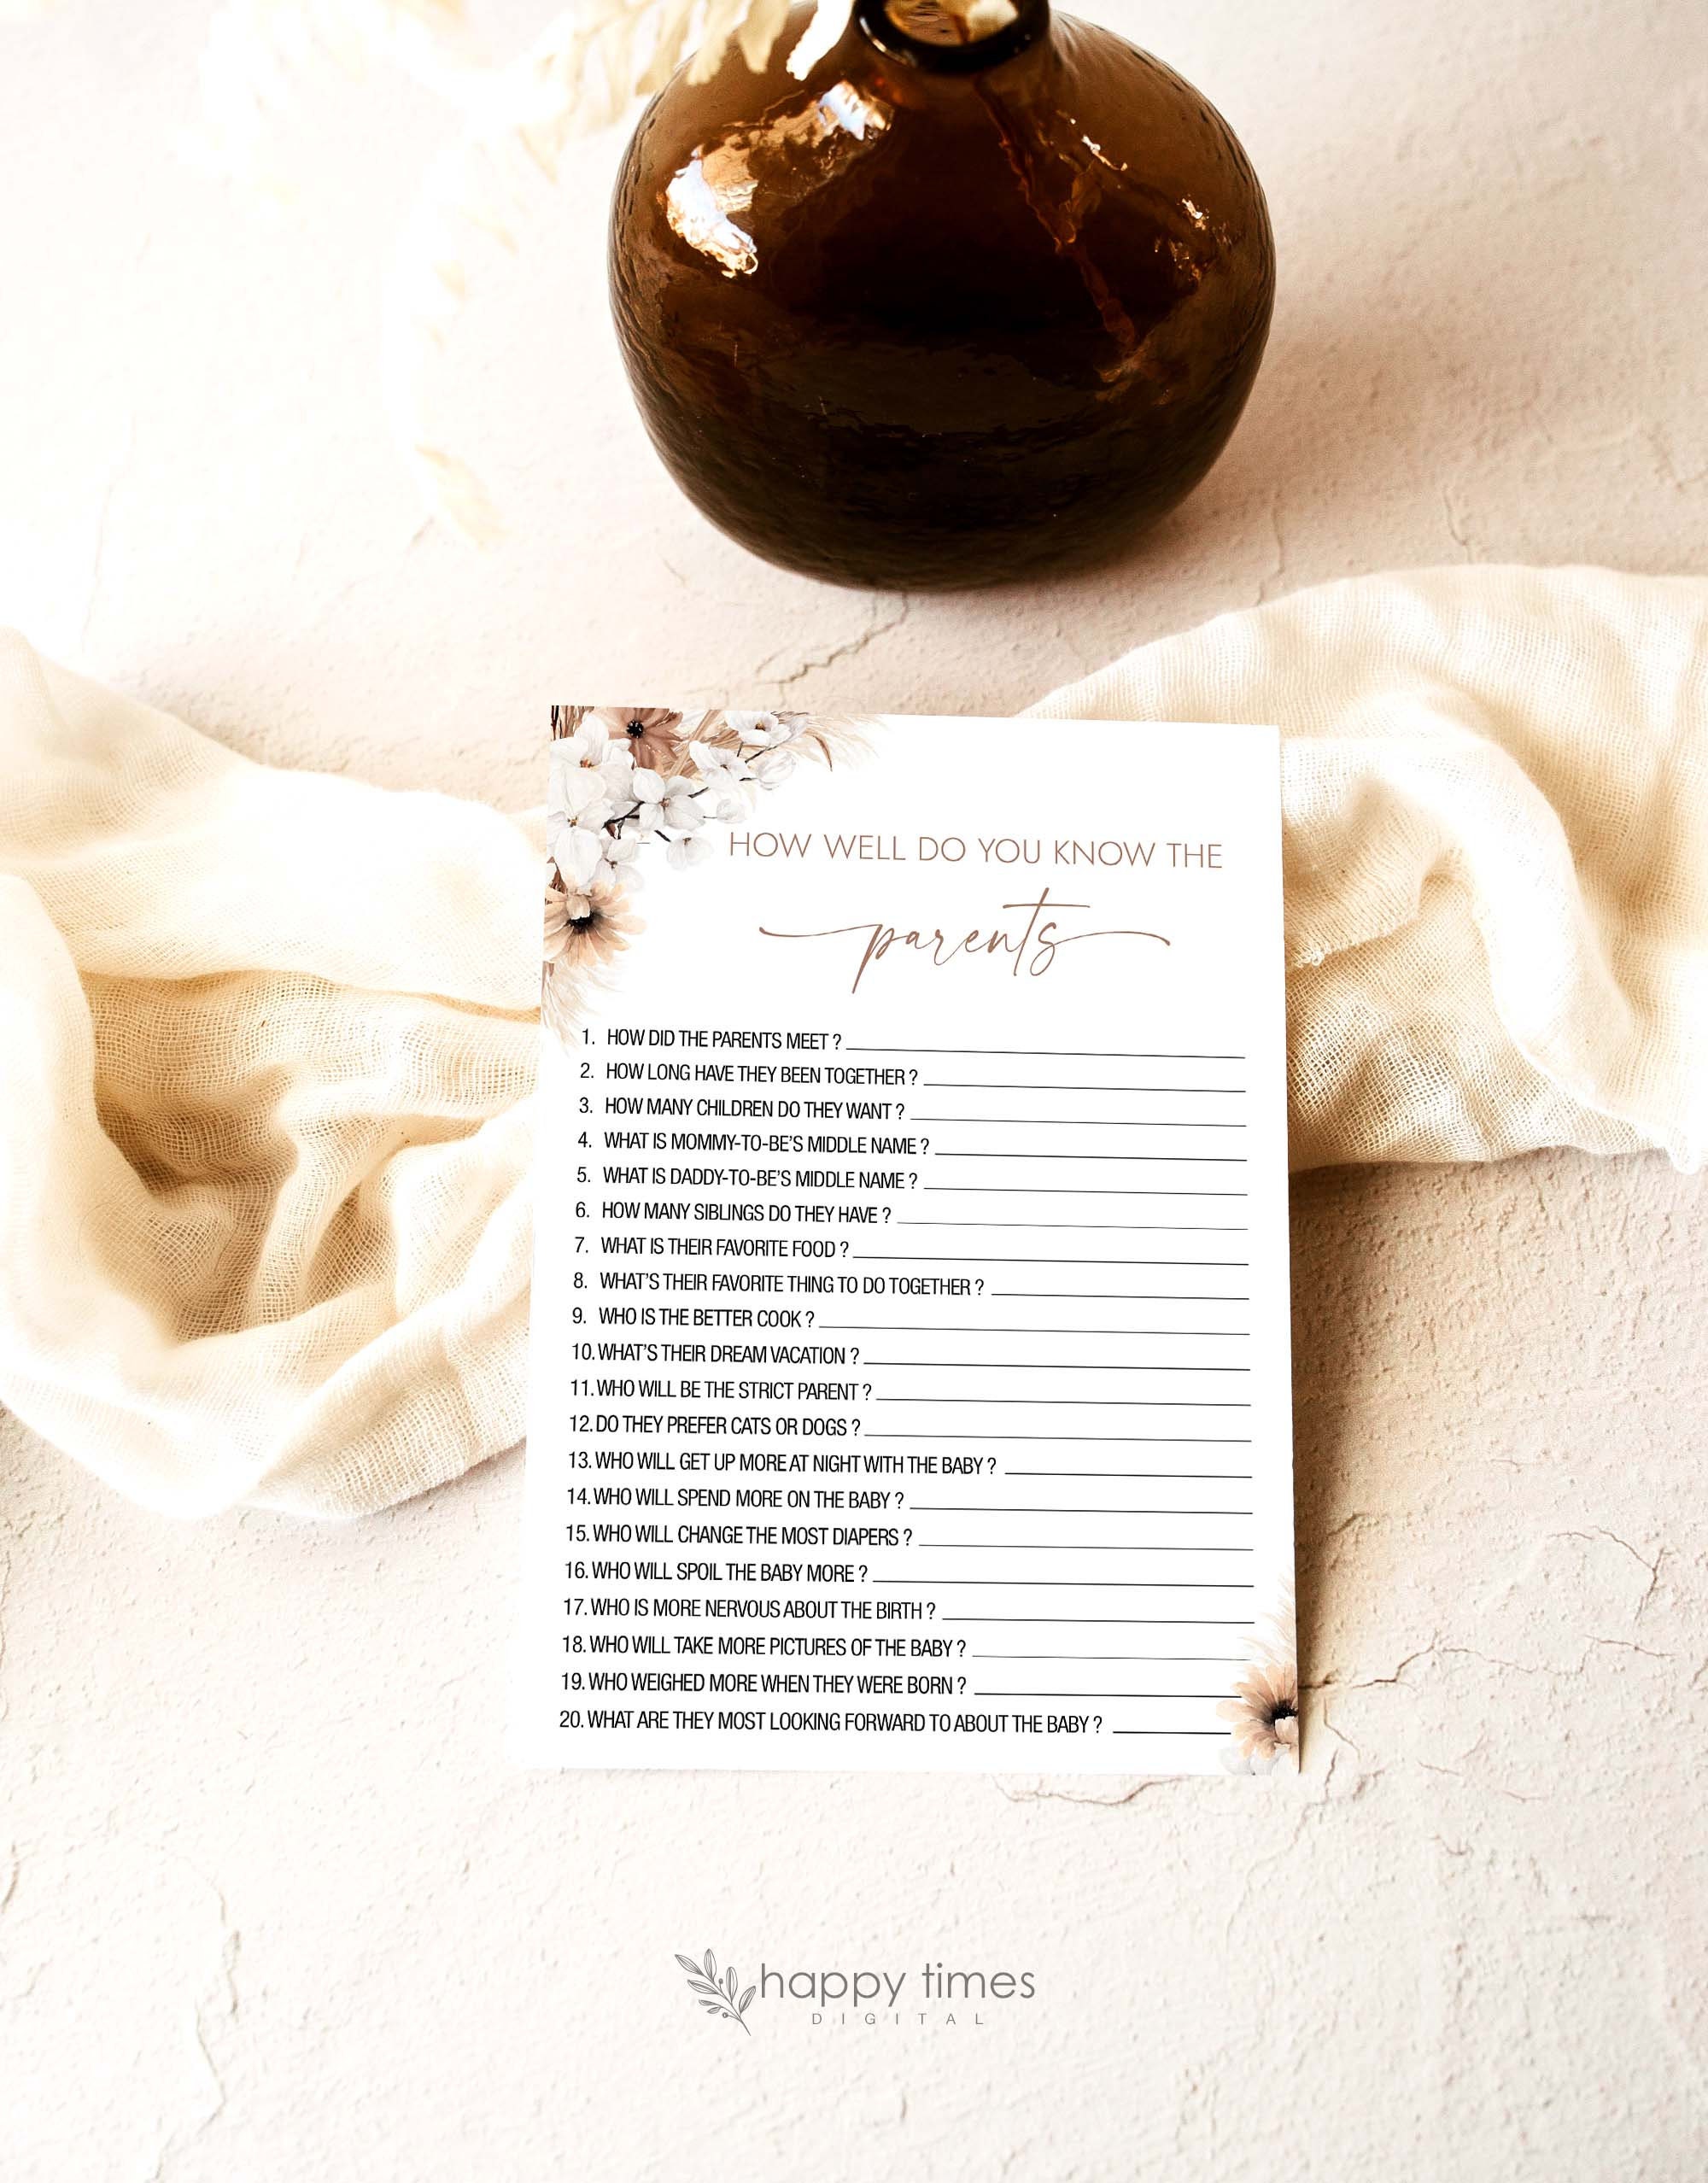 HOW WELL DO YOU KNOW THE
parents
1. HOW DID THE PARENTS MEET ?
2. HOW LONG HAVE THEY BEEN TOGETHER ?
3. HOW MANY CHILDREN DO THEY WANT ?
4. WHAT IS MOMMY-TO-BE'S MIDDLE NAME ?
5. WHAT IS DADDY-TO-BE'S MIDDLE NAME ?
6. HOW MANY SIBLINGS DO THEY HAVE ?
7. WHAT IS THEIR FAVORITE FOOD ?
8. WHAT'S THEIR FAVORITE THING TO DO TOGETHER ?
9. WHO IS THE BETTER COOK ?
10. WHAT'S THEIR DREAM VACATION ?
11. WHO WILL BE THE STRICT PARENT ?
12. DO THEY PREFER CATS OR DOGS ?
13. WHO WILL GET UP MORE AT NIGHT WITH THE BABY ?
14. WHO WILL SPEND MORE ON THE BABY ?
15. WHO WILL CHANGE THE MOST DIAPERS ?
16. WHO WILL SPOIL THE BABY MORE ?
17. WHO IS MORE NERVOUS ABOUT THE BIRTH ?
18. WHO WILL TAKE MORE PICTURES OF THE BABY ?
19. WHO WEIGHED MORE WHEN THEY WERE BORN ?
20. WHAT ARE THEY MOST LOOKING FORWARD TO ABOUT THE BABY ?
happy times
DIGITAL